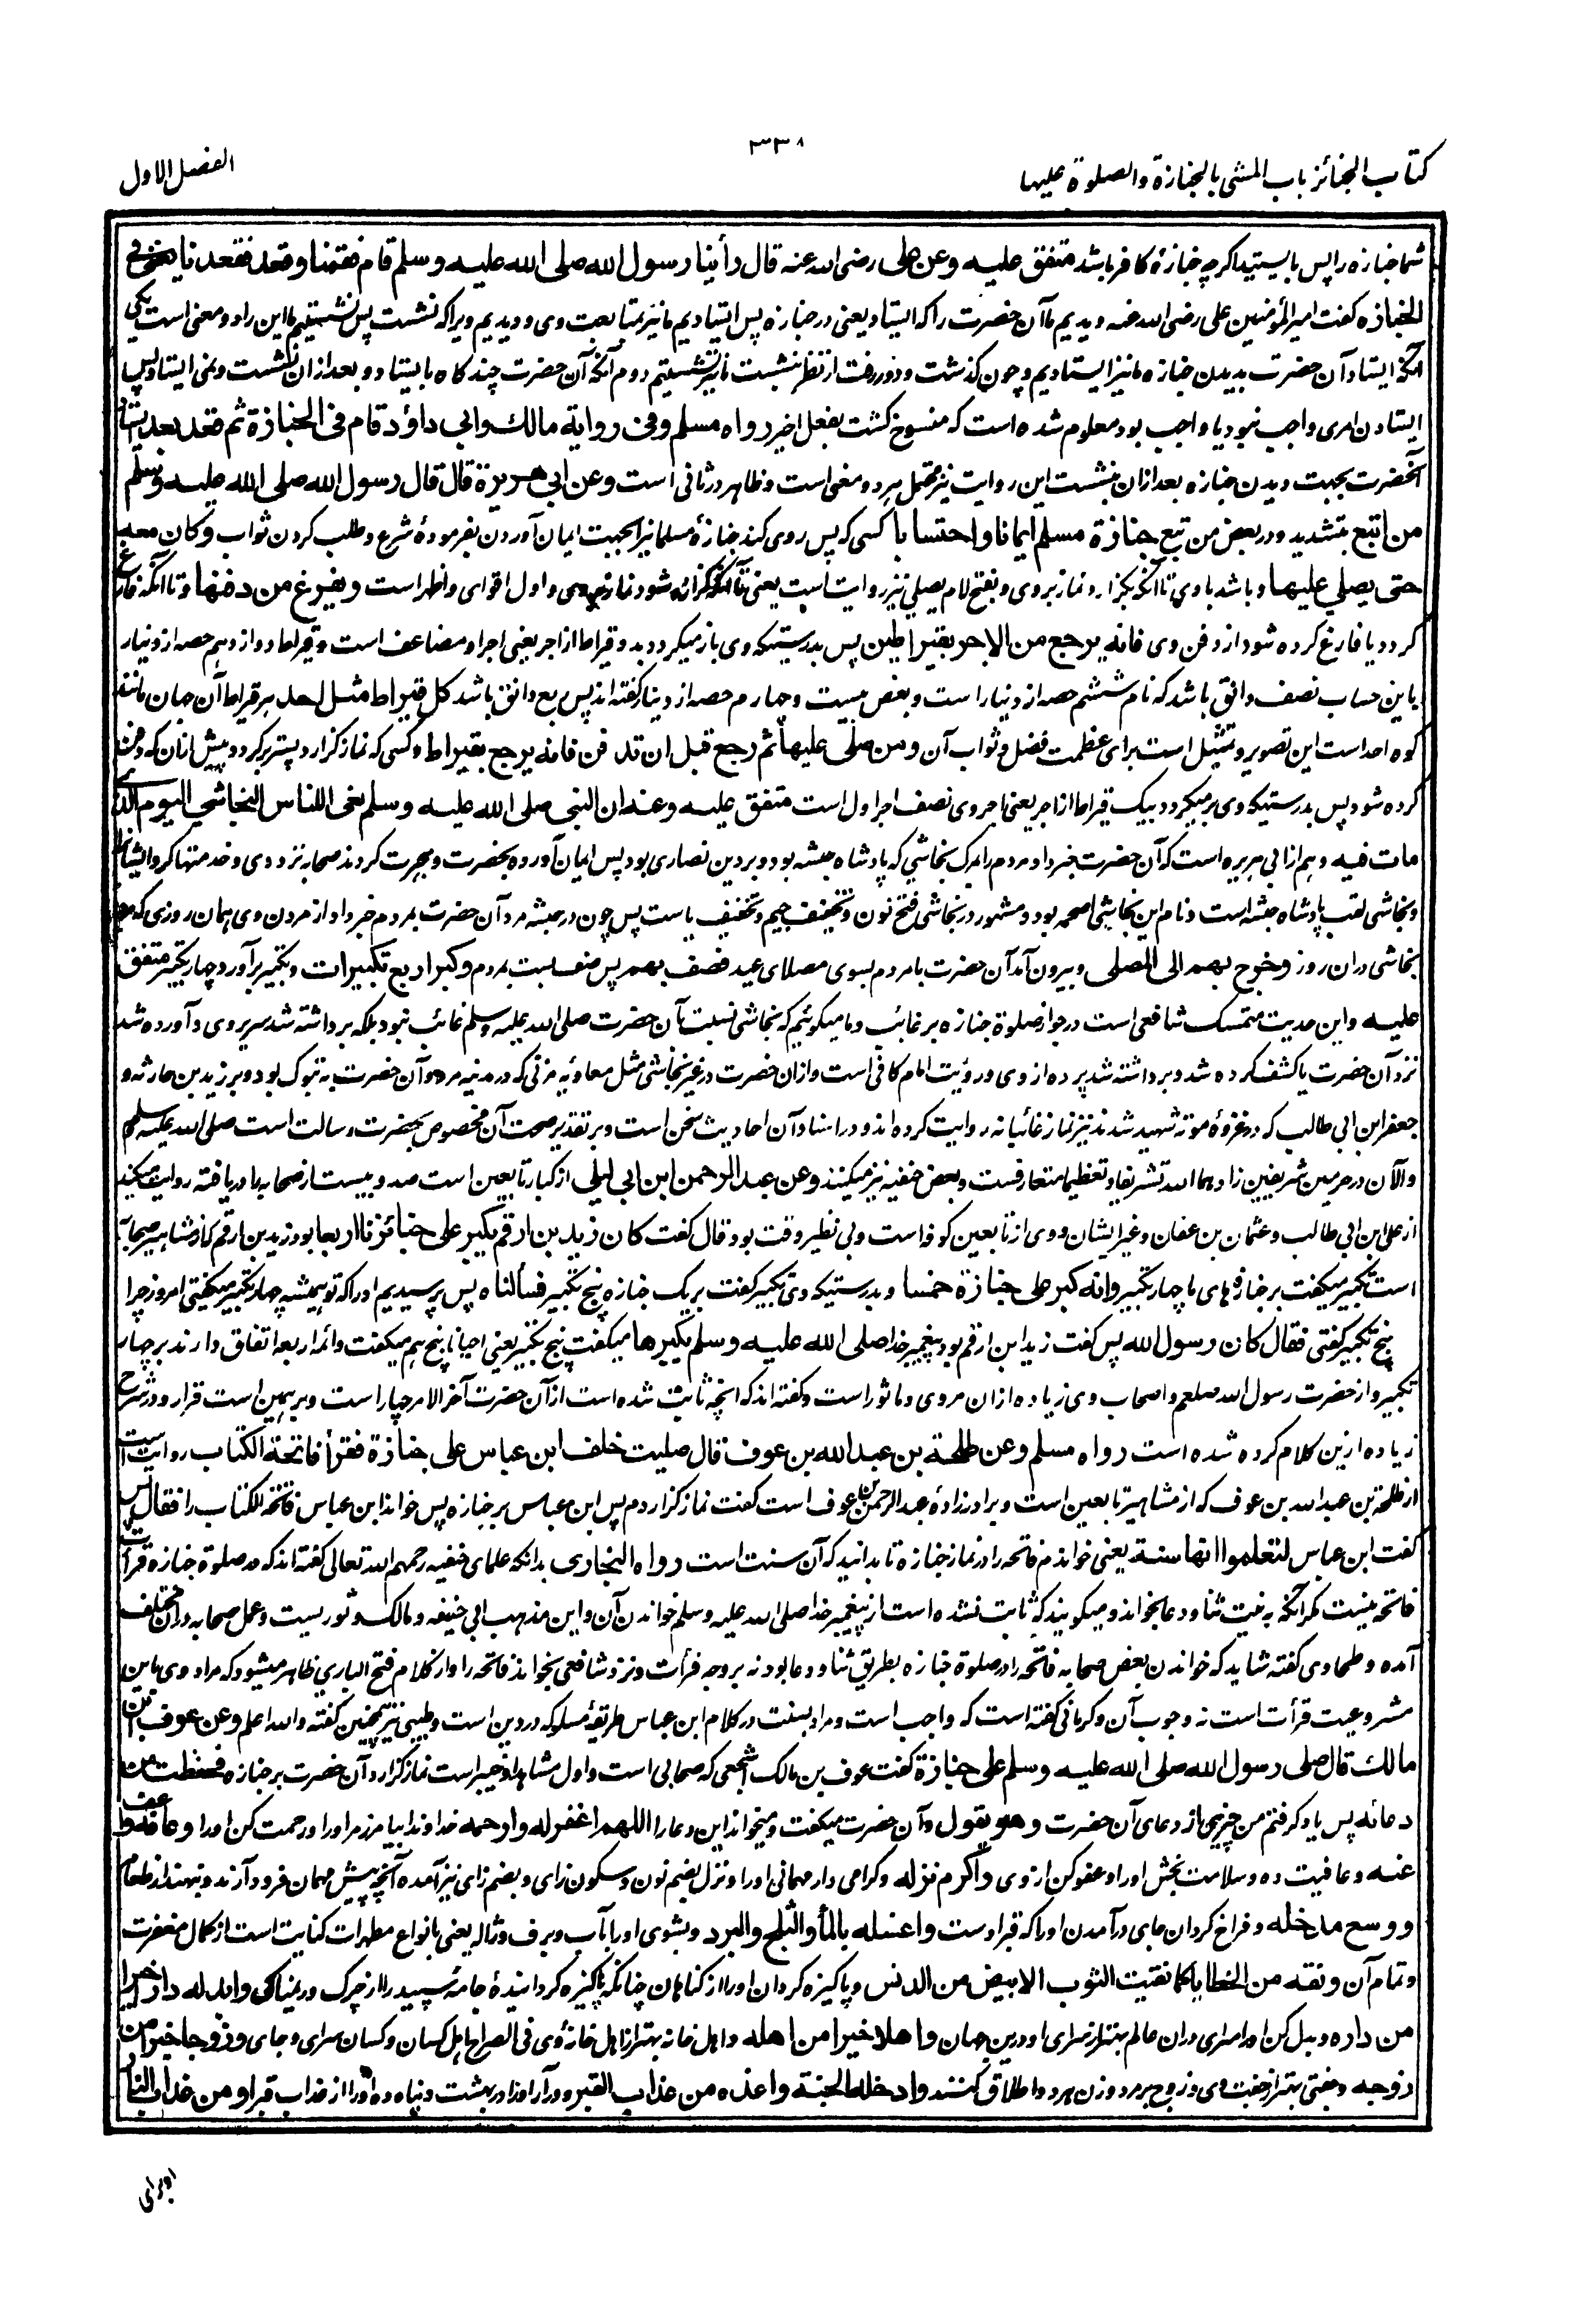 كتاب الجنائز باب المشي بالجنازة والصلوة عليها
۷۳۸
الفصل الاول
شما جنازه را پس بايستيد اگرچه جنازهٔ كافر باشد متفق عليه وعن علي رضى الله عنه قال رأينا رسول الله صلى الله عليه وسلم قام فقمنا وقعد فقعدنا يعني في
الجنازه گفت امير المؤمنين على رضى الله عنه ديديم ما آن حضرت را كه ايستاد يعنى در جنازه پس ايستاديم ما نيز بمتابعت وى و ديديم ويرا كه نشست پس نشستيم ما اين را دو معنى است يكى
آنكه ايستاد آن حضرت بديدن جنازه ما نيز ايستاديم و چون گذشت و دور رفت از نظر بنشست ما نيز نشستيم دوم آنكه آن حضرت چندگاه باستاد و بعد ازان نشست و نمى ايستاد پس
ايستادن امرى واجب نبود يا واجب بود معلوم شده است كه منسوخ گشت بفعل اخير رواه مسلم وفي رواية مالك وابي داؤد قام في الجنازة ثم قعد بعد ايستاد
آنحضرت بجهت ديدن جنازه بعد ازان بنشست اين روايت نيز محتمل هر دو معنى است و ظاهر در ثانى است وعن ابي هريرة قال قال رسول الله صلى الله عليه وسلم
من اتبع بتشديد و در بعض من تبع جنازة مسلم ايمانا واحتسابا كسى كه پس روى كند جنازهٔ مسلمانرا بجهت ايمان آوردن بفرمودهٔ شرع و طلب كردن ثواب وكان معه
حتى يصلي عليها و باشد با وى تا آنكه بگزارد نماز بروى و بفتح لام يصلى نيز روايت است يعنى تا آنكه گزارده شود نماز بروى و اول اقواى و اظهر است ويفرغ من دفنها و تا آنكه فارغ
گردد يا فارغ كرده شود از دفن وى فانه يرجع من الاجر بقيراطين پس بدرستيكه وى باز ميگردد بدو قيراط از اجر يعنى اجر او مضاعف است و قيراط دوازدهم حصه از دينار
باين حساب نصف دانق باشد كه نام ششم حصه از دينار است و بعض بيست و چهارم حصه از دينار گفته اند پس ربع دانق باشد كل قيراط مثل احد هر قيراط آن جهان مانند
كوه احد است اين تصوير و تمثيل است براى عظمت فضل و ثواب آن ومن صلى عليها ثم رجع قبل ان تدفن فانه يرجع بقيراط و كسى كه نماز گزارد پستر برگردد پيش ازان كه دفن
كرده شود پس بدرستيكه وى برميگردد بيك قيراط از اجر يعنى اجر وى نصف اجر اول است متفق عليه وعنه ان النبي صلى الله عليه وسلم نعى للناس النجاشي اليوم الذي
مات فيه و هم از ابى هريره است كه آن حضرت خبر داد مردم را بمرگ نجاشى كه پادشاه حبشه بود و بر دين نصارى بود پس ايمان آورده بحضرت و هجرت كردند صحابه نزد وى و خدمتها كرد ايشانرا
و نجاشى لقب پادشاه حبشه است و نام اين نجاشى اصحمه بود و مشهور در نجاشى فتح نون و تخفيف جيم و تخفيف ياست پس چون در حبشه مرد آن حضرت بمردم خبر داد از مردن وى همان روزى كه مرد
نجاشى دران روز وخرج بهم الى المصلى و بيرون آمد آن حضرت با مردم بسوى مصلاى عيد فصف بهم پس صف بست بمردم وكبر اربع تكبيرات و تكبير برآورد چهار تكبير متفق
عليه و اين حديث متمسك شافعى است در جواز صلوة جنازه بر غائب و ما ميگوئيم كه نجاشى نسبت بآن حضرت صلى الله عليه وسلم غائب نبود بلكه برداشته شد سرير وى و آورده شد
نزد آن حضرت يا كشف كرده شد و برداشته شد پرده از وى و رؤيت امام كافى است و ازان حضرت در غير نجاشى مثل معاويه مزنى كه در مدينه مرد و آن حضرت به تبوك بود و بر زيد بن حارثه و
جعفر ابن ابى طالب كه در غزوهٔ موته شهيد شدند نيز نماز غائبانه روايت كرده اند و در اسناد آن احاديث سخن است و بر تقدير صحت آن مخصوص بحضرت رسالت است صلى الله عليه وسلم
والآن در حرمين شريفين زادهما الله تشريفا و تعظيما متعارفست و بعض حنفيه نيز ميكنند وعن عبد الرحمن ابن ابي ليلى از كبار تابعين است صد و بيست از صحابه را دريافته روايت ميكند
از على ابن ابى طالب و عثمان بن عفان و غير ايشان و وى از تابعين كوفه است و بى نظير وقت بود قال گفت كان زيد بن ارقم يكبر على جنائزنا اربعا بود زيد بن ارقم كه از مشاهير صحابه
است تكبير ميگفت بر جنازه هاى ما چهار تكبير وانه كبر على جنازة خمسا و بدرستيكه وى تكبير گفت بر يك جنازه پنج تكبير فسألناه پس پرسيديم او را كه تو هميشه چهار تكبير ميگفتى امروز چرا
پنج تكبير گفتى فقال كان رسول الله پس گفت زيد ابن ارقم بود پيغمبر خدا صلى الله عليه وسلم يكبرها ميگفت پنج تكبير يعنى احيانا پنج هم ميگفت و ائمه اربعه اتفاق دارند بر چهار
تكبير و از حضرت رسول الله صلعم و اصحاب وى زياده ازان مروى و ماثور است و گفته اند كه آنچه ثابت شده است از آن حضرت آخر الامر چهار است و بر همين است قرار و در شرح
زياده ازين كلام كرده شده است رواه مسلم وعن طلحة بن عبد الله بن عوف قال صليت خلف ابن عباس على جنازة فقرأ فاتحة الكتاب روايت است
از طلحه بن عبد الله بن عوف كه از مشاهير تابعين است و برادرزادهٔ عبد الرحمن بن عوف است گفت نماز گزاردم پس ابن عباس بر جنازه پس خواند ابن عباس فاتحة الكتاب را فقال پس
گفت ابن عباس لتعلموا انها سنة يعنى خواندم فاتحه را در نماز جنازه تا بدانيد كه آن سنت است رواه البخاري بدانكه علماى حنفيه رحمهم الله تعالى گفته اند كه در صلوة جنازه قرأت
فاتحه نيست مگر آنكه به نيت ثنا و دعا بخواند و ميگويند كه ثابت نشده است از پيغمبر خدا صلى الله عليه وسلم خواندن آن و اين مذهب ابى حنيفه و مالك و ثوريست و عمل صحابه دران مختلف
آمده و طحاوى گفته شايد كه خواندن بعض صحابه فاتحه را در صلوة جنازه بطريق ثنا و دعا بود نه بر وجه قرأت و نزد شافعى بخواند فاتحه را و از كلام فتح البارى ظاهر ميشود كه مراد وى باين
مشروعيت قرأت است نه وجوب آن و كرمانى گفته است كه واجب است و مراد بسنت در كلام ابن عباس طريقهٔ مسلوكه در دين است و طيبى نيز همچنين گفته والله اعلم وعن عوف ابن
مالك قال صلى رسول الله صلى الله عليه وسلم على جنازة گفت عوف بن مالك اشجعى كه صحابى است و اول مشاهد او خيبر است نماز گزارد آن حضرت بر جنازه فحفظت من
دعائه پس ياد گرفتم من چيزى از دعاى آن حضرت وهو يقول و آن حضرت ميگفت و ميخواند اين دعا را اللهم اغفر له وارحمه خداوندا بيامرز مر او را و رحمت كن او را وعافه واعف
عنه و عافيت ده و سلامت بخش او را و عفو كن از وى واكرم نزله و گرامى دار مهمانى او را و نزل بضم نون و سكون زاى و بضم زاى نيز آمده آنچه پيش مهمان فرود آرند و بنهند از طعام
ووسع مدخله و فراخ گردان جاى درآمدن او را كه قبر اوست واغسله بالماء والثلج والبرد و بشوى او را بآب و برف و ژاله يعنى بانواع مطهرات كنايت است از كمال مغفرت
و تمام آن ونقه من الخطايا كما نقيت الثوب الابيض من الدنس و پاكيزه گردان او را از گناهان چنانكه پاكيزه گردانيدهٔ جامهٔ سپيد را از چرك و ريمناكى وابدله دارا خيرا
من داره و بدل كن او را سراى دران عالم بهتر از سراى او درين جهان واهلا خيرا من اهله و اهل خانه بهتر از اهل خانهٔ وى فى الصراح اهل كسان و كسان سراى و جاى وزوجا خيرا من
زوجه و جفتى بهتر از جفت وى و زوج بر مرد و زن هر دو اطلاق كنند وادخله الجنة واعذه من عذاب القبر و درآر او را در بهشت و پناه ده او را از عذاب قبر او من عذاب النار